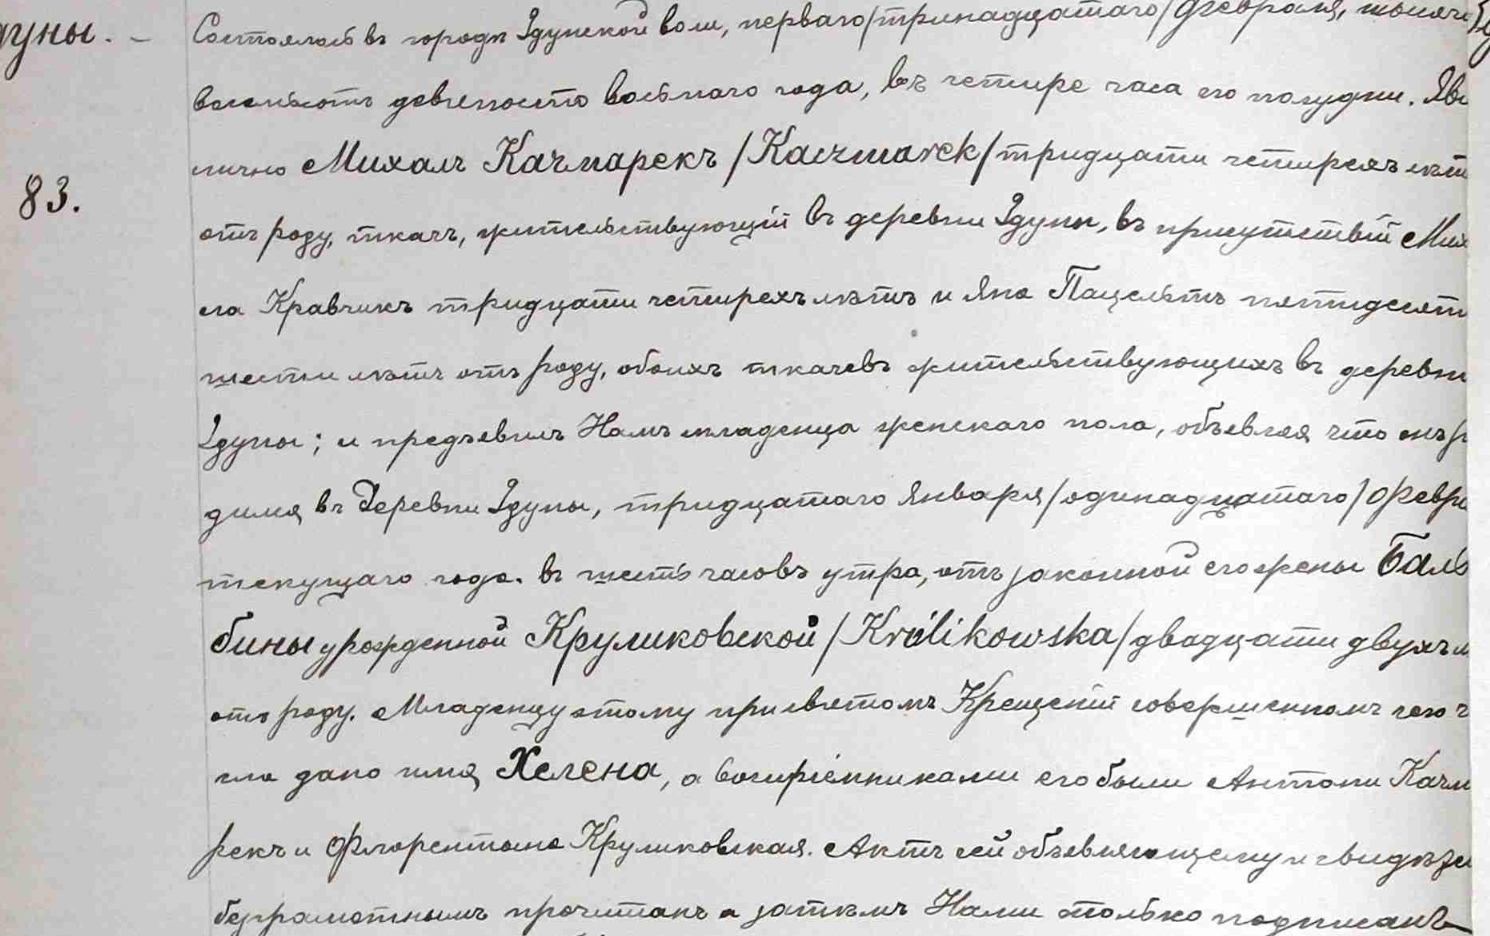 дуны. –
Состоялось въ городѣ Здунской воли, перваго/тринадцатаго/Февраля, тысяч
восемьсотъ девяносто восьмаго года, въ четыре часа по полудни. Яви
лично Михалъ Качмарекъ /Kaczmarek/ тридцати четырехъ лѣт
83.
отъ роду, ткачъ, жительствующій въ деревни Здуны, въ присутствіи Мих
ла Кравчикъ тридцати четырехъ лѣтъ и Яна пятидесяти
шести лѣтъ отъ роду, обоихъ ткачевъ жительствующихъ въ деревни
Здуны; и предъевилъ Намъ младенца женскаго пола, объевляя что онъ р
дился въ Деревни Здуны, тридцатаго Января/одинадцатаго/Февра
текущаго года. въ шесть часовъ утра, отъ законной его жены Баль
бины урожденной Круликовской /Królikowska/ двадцати двухъ л
отъ роду. Младенцу этому при святомъ Крещеніи совершенномъ сего ч
сла дано имя Хелена, а воспріенниками его были Антони Качм
рекъ и Флорентына Круликовская. Актъ сей объевляющему и свидѣте
безграмотнымъ прочитанъ а затѣмъ Нами только подписанъ